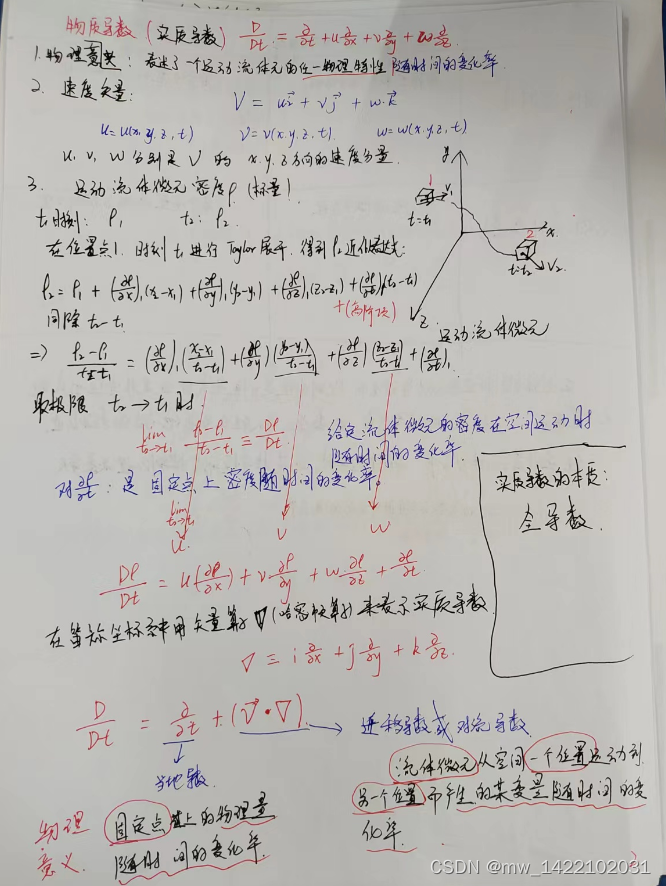 物质导数(实质导数) D/Dt = ∂/∂t + u ∂/∂x + v ∂/∂y + w ∂/∂z.
1. 物理意义: 表达了一个运动流体元的任一物理特性随时间的变化率.
2. 速度矢量: V = ui + vj + w·k
u = u(x, y, z, t) v = v(x, y, z, t). w = w(x, y, z, t)
u, v, w 分别是 V 的 x. y. z 方向的速度分量.
3. 运动流体微元密度ρ (标量)
t₁时刻: ρ₁ t₂: ρ₂.
在位置点1. 时刻 t₁ 进行 Taylor 展开, 得到 ρ₂近似表达:
ρ₂ = ρ₁ + (∂ρ/∂x)₁(x₂-x₁) + (∂ρ/∂y)₁(y₂-y₁) + (∂ρ/∂z)₁(z₂-z₁) + (∂ρ/∂t)₁(t₂-t₁)
+(高阶项)
同除 t₂-t₁
y
1
V₁
t=t₁
x.
2
t=t₂
V₂.
z
运动流体微元
=> (ρ₂-ρ₁)/(t₂-t₁) = (∂ρ/∂x)₁ (x₂-x₁)/(t₂-t₁) + (∂ρ/∂y) (y₂-y₁)/(t₂-t₁) + (∂ρ/∂z) (z₂-z₁)/(t₂-t₁) + (∂ρ/∂t)₁
取极限 t₂→t₁时
lim t₂→t₁ (ρ₂-ρ₁)/(t₂-t₁) ≡ Dρ/Dt.
给定流体微元的密度在空间运动时
随时间的变化率.
对 ∂ρ/∂t: 是固定点上密度随时间的变化率.
lim t₂→t₁
u. v w
Dρ/Dt = u(∂ρ/∂x) + v ∂ρ/∂y + w ∂ρ/∂z + ∂ρ/∂t
实质导数的本质:
全导数.
在笛尔坐标系中用矢量算子∇(哈密顿算子)来表示实质导数.
∇ = i ∂/∂x + j ∂/∂y + k ∂/∂z.
D/Dt = ∂/∂t + (V·∇) → 迁移导数或对流导数.
当地导数
流体微元从空间一个位置运动到
另一个位置而产生的某变量随时间的变
化率.
物理
意义.
固定点上的物理量
随时间的变化率.
CSDN @mw_1422102031